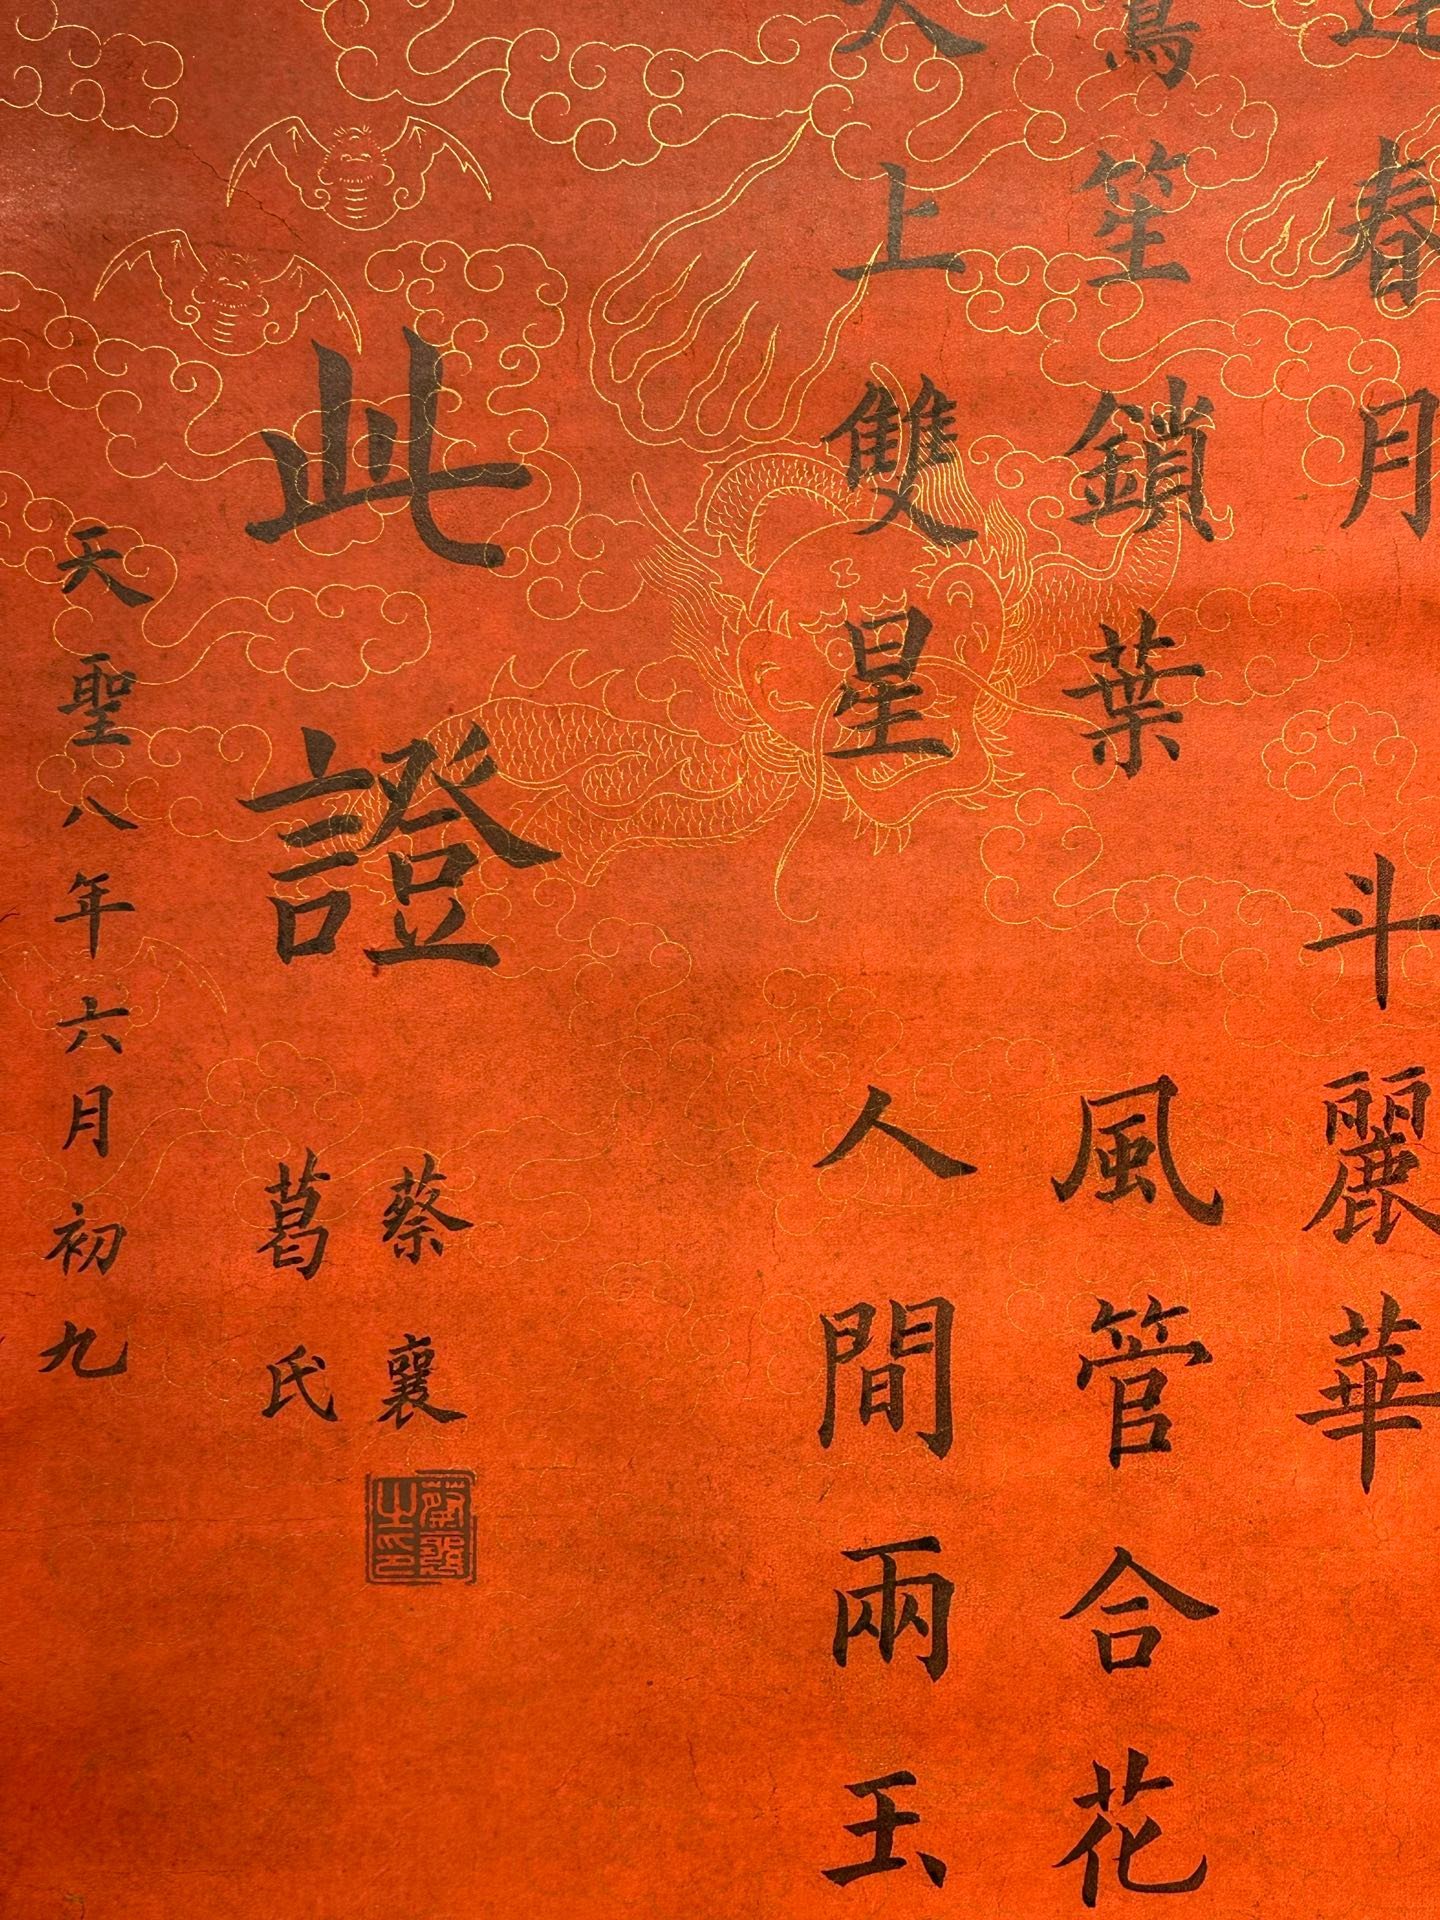 春月 斗麗華
笙鎖葉 風管合花
上雙星 人間兩玉
此證
蔡襄
葛氏
天聖八年六月初九